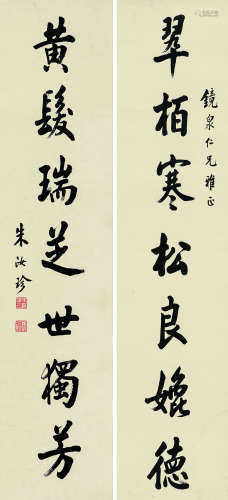 翠栢寒松良媲德
鏡泉仁兄雅正
黃髮瑞芝世獨芳
朱汝珍